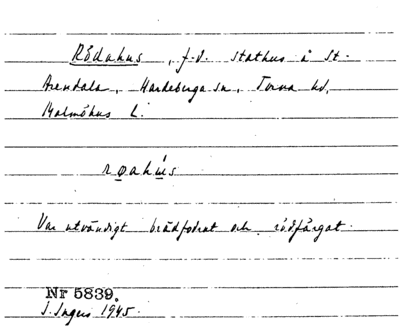 Rödahus, f.d. stathus å St.
Arendala, Hardeberga sn, Torna hd,
Malmöhus L.
røahús
Var utvändigt brädfodrat och rödfärgat.
Nr 5839.
J. Ingers 1945.